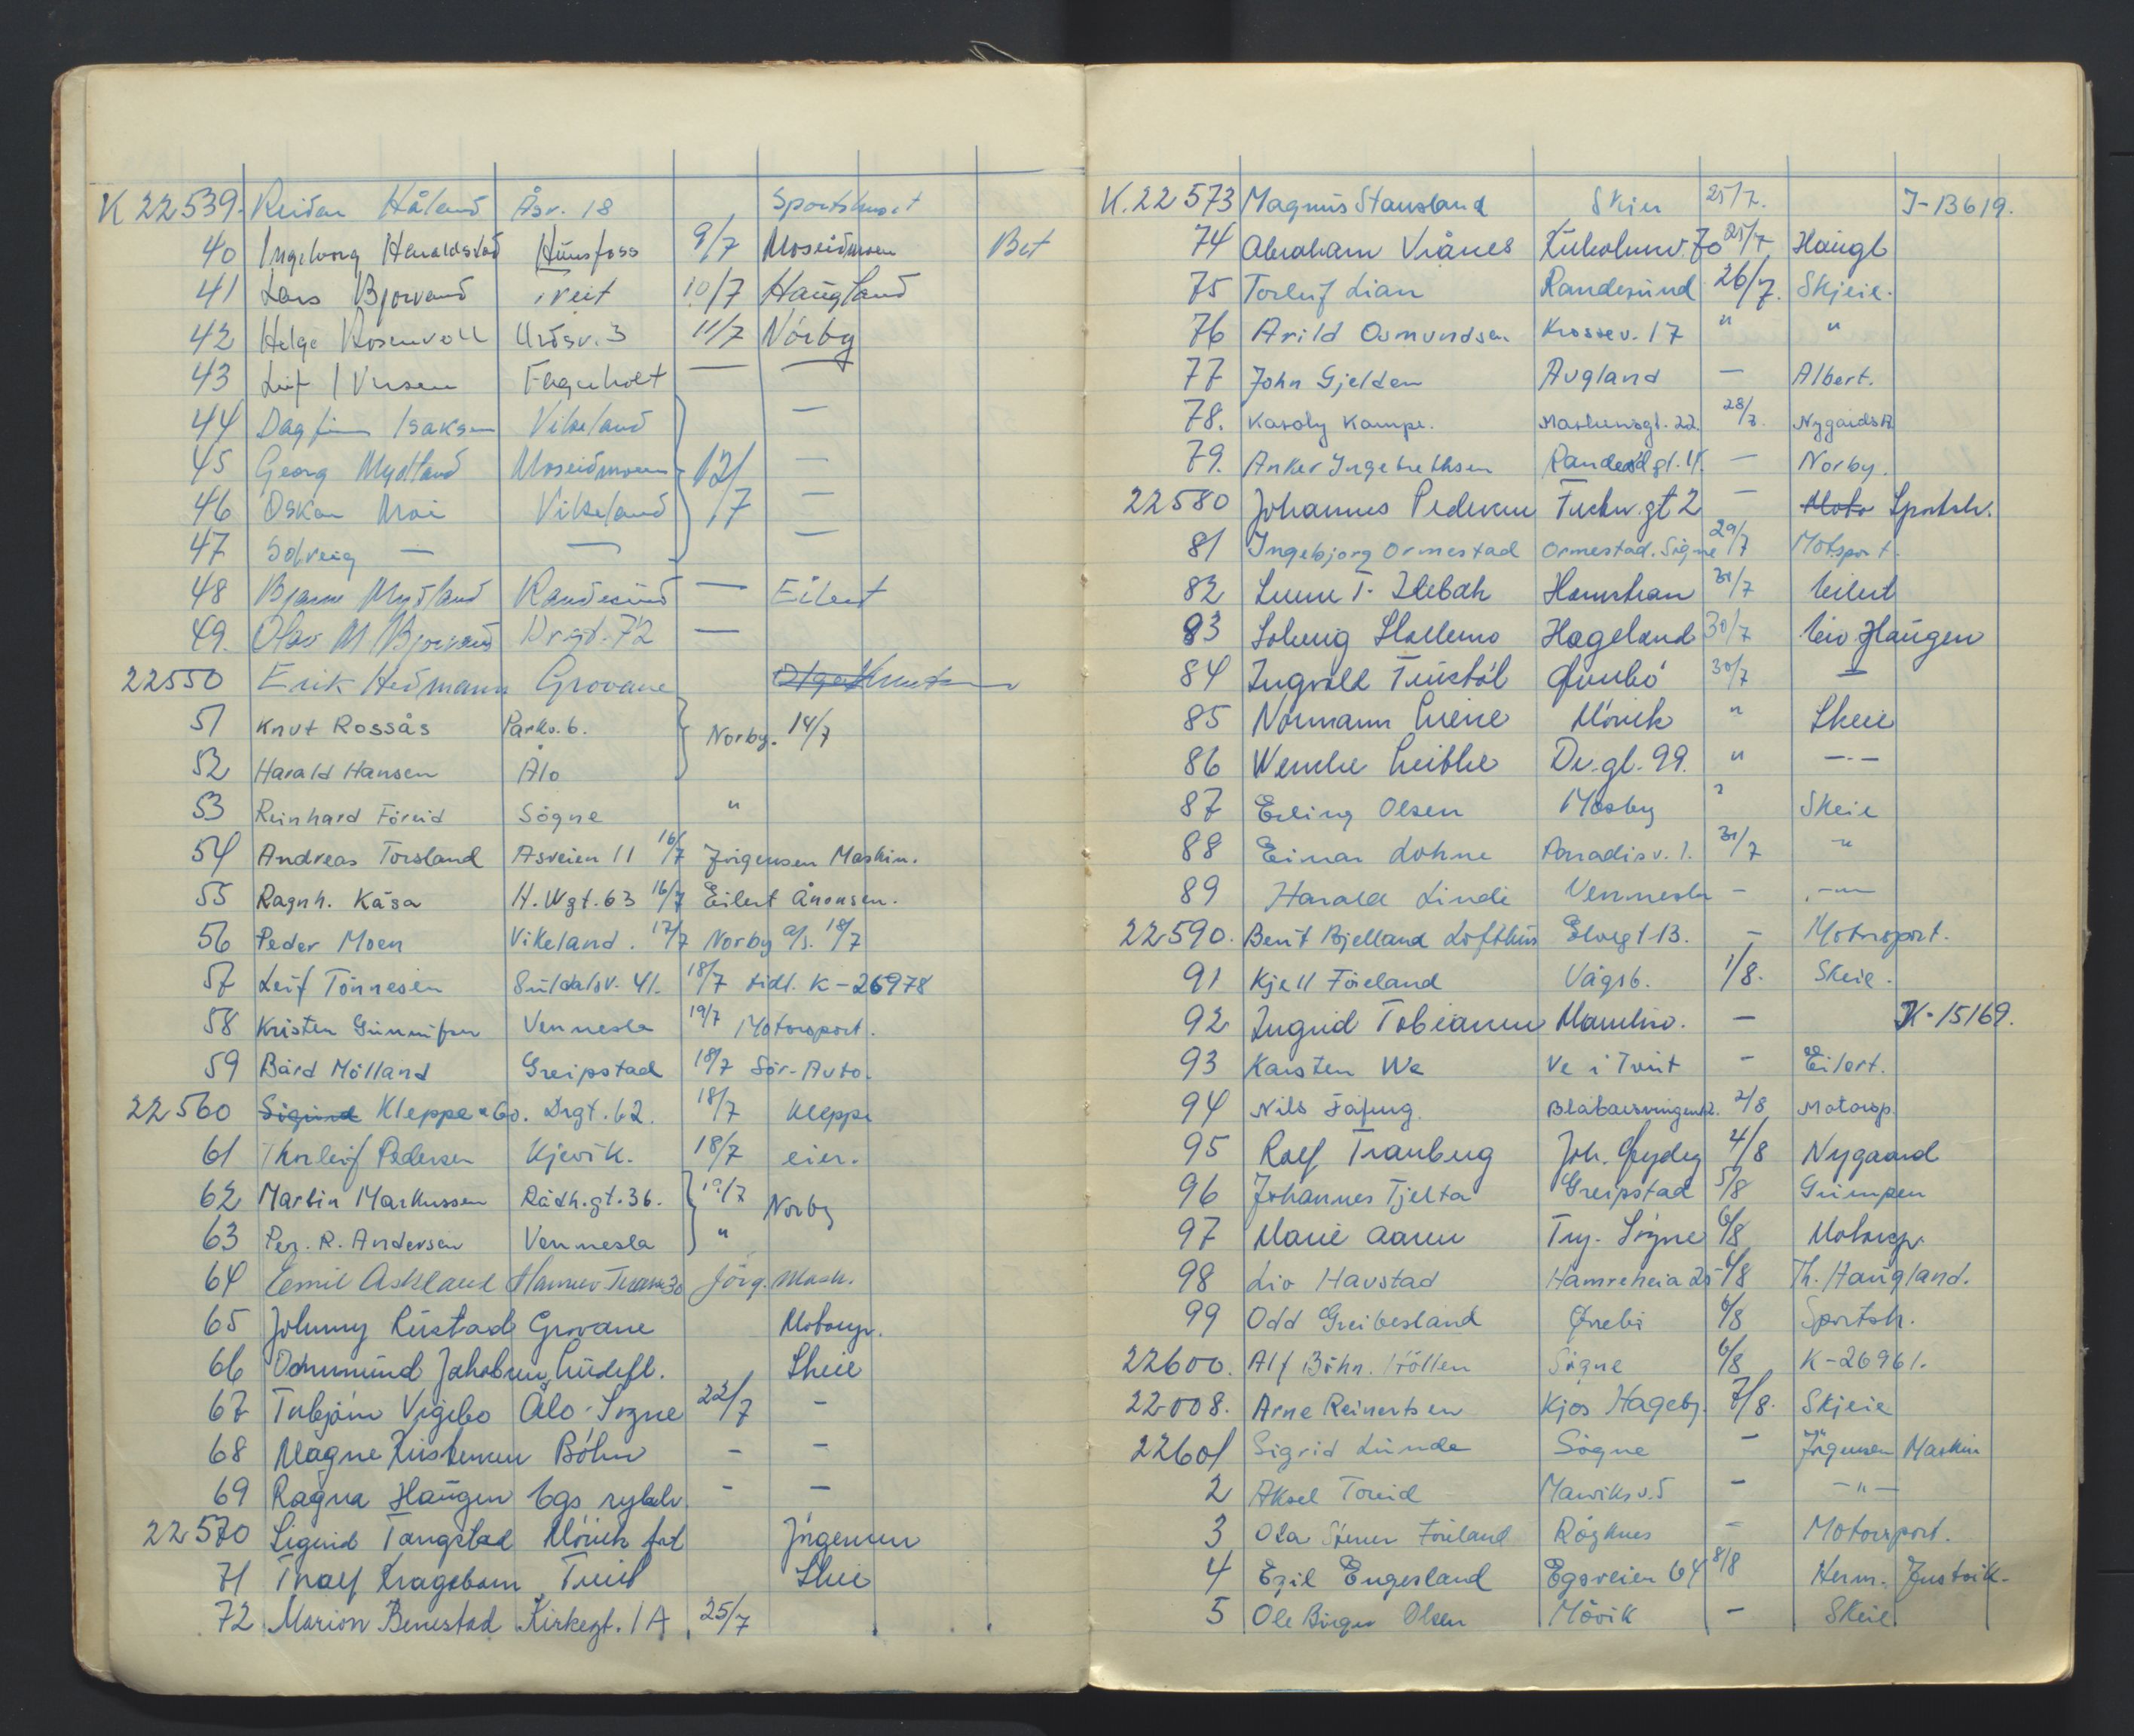 K 22539. Reidar Håland Åsv. 18 Sportshuset
40 Ingeborg Haraldstad Hunsfoss 9/7 Moseidmoen Bet
41 Lars Bjorvand Tveit 10/7 Haugland
42 Helge Rosenvoll Urdsv. 3 11/7 Nörby
43 Leif Iversen Fagerholt — —
44 Dagfinn Isaksen Vikeland —
45 Georg Mydland Moseidmoen 12/7 —
46 Oskar Moi Vikeland —
47 Solveig — — —
48 Bjarne Mydland Randesund — Eilert
49. Olav M Bjorvand Drgt. 72 —
22550 Erik Hedmann Grovane
51 Knut Rossås Parkv. 6. Norby. 14/7
52 Harald Hansen Ålo
53 Reinhard Föreid Sögne "
54 Andreas Torsland Åsveien 11 16/7 Jörgensen Maskin.
55 Ragnh. Kåsa H. Wgt. 63 16/7 Eilert Ånonsen.
56 Peder Moen Vikeland. 17/7 Norby a/s. 18/7
57 Leif Tönnesen Suldalsv. 41. 18/7 tidl. K-26978
58 Kristen Gunnufsen Vennesla 19/7 Motorsport.
59 Bård Mölland Greipstad 18/7 Sör-Auto.
22560 Sigurd Kleppe & Co. Drgt. 62. 18/7 Kleppe
61 Thorleif Pedersen Kjevik. 18/7 eier.
62 Martin Markussen Rådh.gt. 36. 19/7 Norby
63 Per. R. Andersen Vennesla "
64 Emil Askland Jörg. Mask.
65 Johnny Rustad Grovane Motorsp.
66 Odmund Jakobsen Skeie
67 Torbjörn Vigebo Ålo Sögne 22/7 -
68 Magne Kristensen Böhn - -
69 Ragna Haugen Egs sykeh. - -
22570 Sigurd Tangstad Mövik fort Jörgensen
71 Tveit Skeie
72 Marion Benestad Kirkegt. 1A 25/7
K. 22573 Magnus Stausland Skien 25/7. J-13619.
74 Abraham Vrånes Kuholmsv. 70 25/7 Haugl
75 Torleif Lian Randesund 26/7. Skjeie.
76 Arild Osmundsen Krossev. 17 " "
77 John Gjelden Augland — Albert.
78. Karoly Kampe. Markensgt. 22. 28/7. Nygaards A
79. Anker Ingebrethsen Randesd gt. 4. — Norby.
22580 Johannes Pedersen gt 2 — Moto Sportsh.
81 Ingebjorg Ormestad Ormestad. Sögne 29/7 Motsport.
82 31/7 Eilert
83 Solveig Stallemo Hageland 30/7 Eiv Haugen
84 Ingvald Tveit 30/7 —
85 Normann Mövik " Skeie
86 Wenche Dr.gt. 99. " —.—
87 Erling Olsen Mosby " Skeie
88 Einar Lohne Paradisv. 1. 31/7 "
89 Harald Linde Vennesla - -"-
22590. Berit Bjelland Lofthus Elvegt 13. - Motorsport.
91 Kjell Föreland Vågsb. 1/8. Skeie.
92 Ingrid Tobiassen — K-15169.
93 Karsten We Ve i Tveit - Eilert.
94 Nils Blåbærsvingen 12. 2/8 Motorsp.
95 Rolf Tranberg 4/8 Nygaard
96 Johannes Tjelta Greipstad 5/8 Grimpen
97 Marie Aaren Try. Sögne 6/8 Motorsp.
98 Liv Havstad Hamreheia 25 6/8 Th. Haugland.
99 Odd Greibesland Ørebø 6/8 Sportsh.
22600. Alf Böhn. Sögne 6/8 K-26961.
22008. Arne Reinertsen Kjos Hageby. 7/8. Skjeie
22601 Sigrid Lunde Sögne - Jörgensen Maskin
2 Aksel Toreid Marviksv. 5 - -"-
3 Ola Steinar Föreland Rögknes - Motorsport.
4 Egil Engesland Egsveien 64 8/8 Herm. Justvik.
5 Ole Birger Olsen Mövik - Skeie